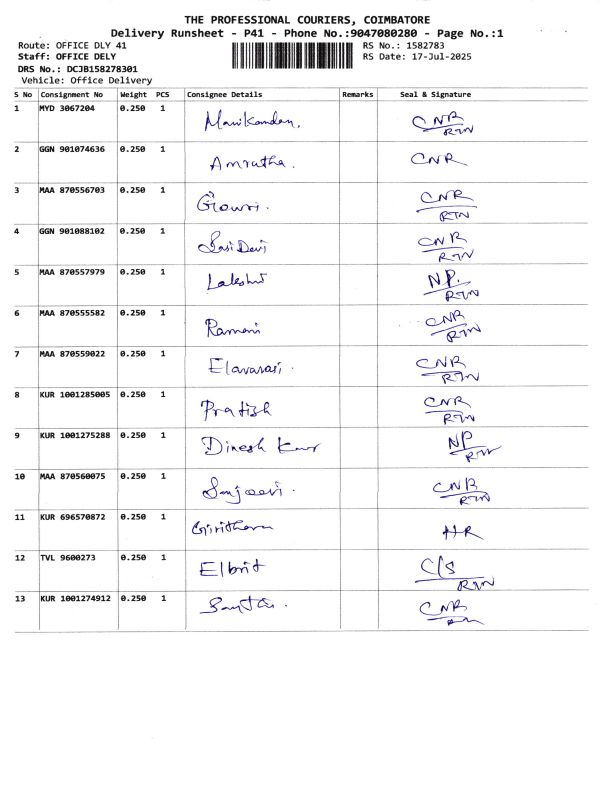 THE PROFESSIONAL COURIERS, COIMBATORE
Delivery Runsheet - P41 - Phone No.:9047080280 - Page No.:1
Route: OFFICE DLY 41 RS No.: 1582783
Staff: OFFICE DELY RS Date: 17-Jul-2025
DRS No.: DCJB158278301
Vehicle: Office Delivery
S No Consignment No Weight PCS Consignee Details Remarks Seal & Signature
1 MYD 3067204 0.250 1 Manikandan. CNR
RTN
2 GGN 901074636 0.250 1 Amratha. CNR
3 MAA 870556703 0.250 1 Gowri. CNR
RTN
4 GGN 901088102 0.250 1 Sasi Devi CNR
RTN
5 MAA 870557979 0.250 1 Lakshmi NP.
RTN
6 MAA 870555582 0.250 1 Ramani CNR
RTN
7 MAA 870559022 0.250 1 Elavarasi. CNR
RTN
8 KUR 1001285005 0.250 1 Pratish CNR
RTN
9 KUR 1001275288 0.250 1 Dinesh Kumar NP
RTN
10 MAA 870560075 0.250 1 Sanjeevi. CNR
RTN
11 KUR 696570872 0.250 1
12 TVL 9600273 0.250 1 Elbrit C/S
RTN
13 KUR 1001274912 0.250 1 CNR